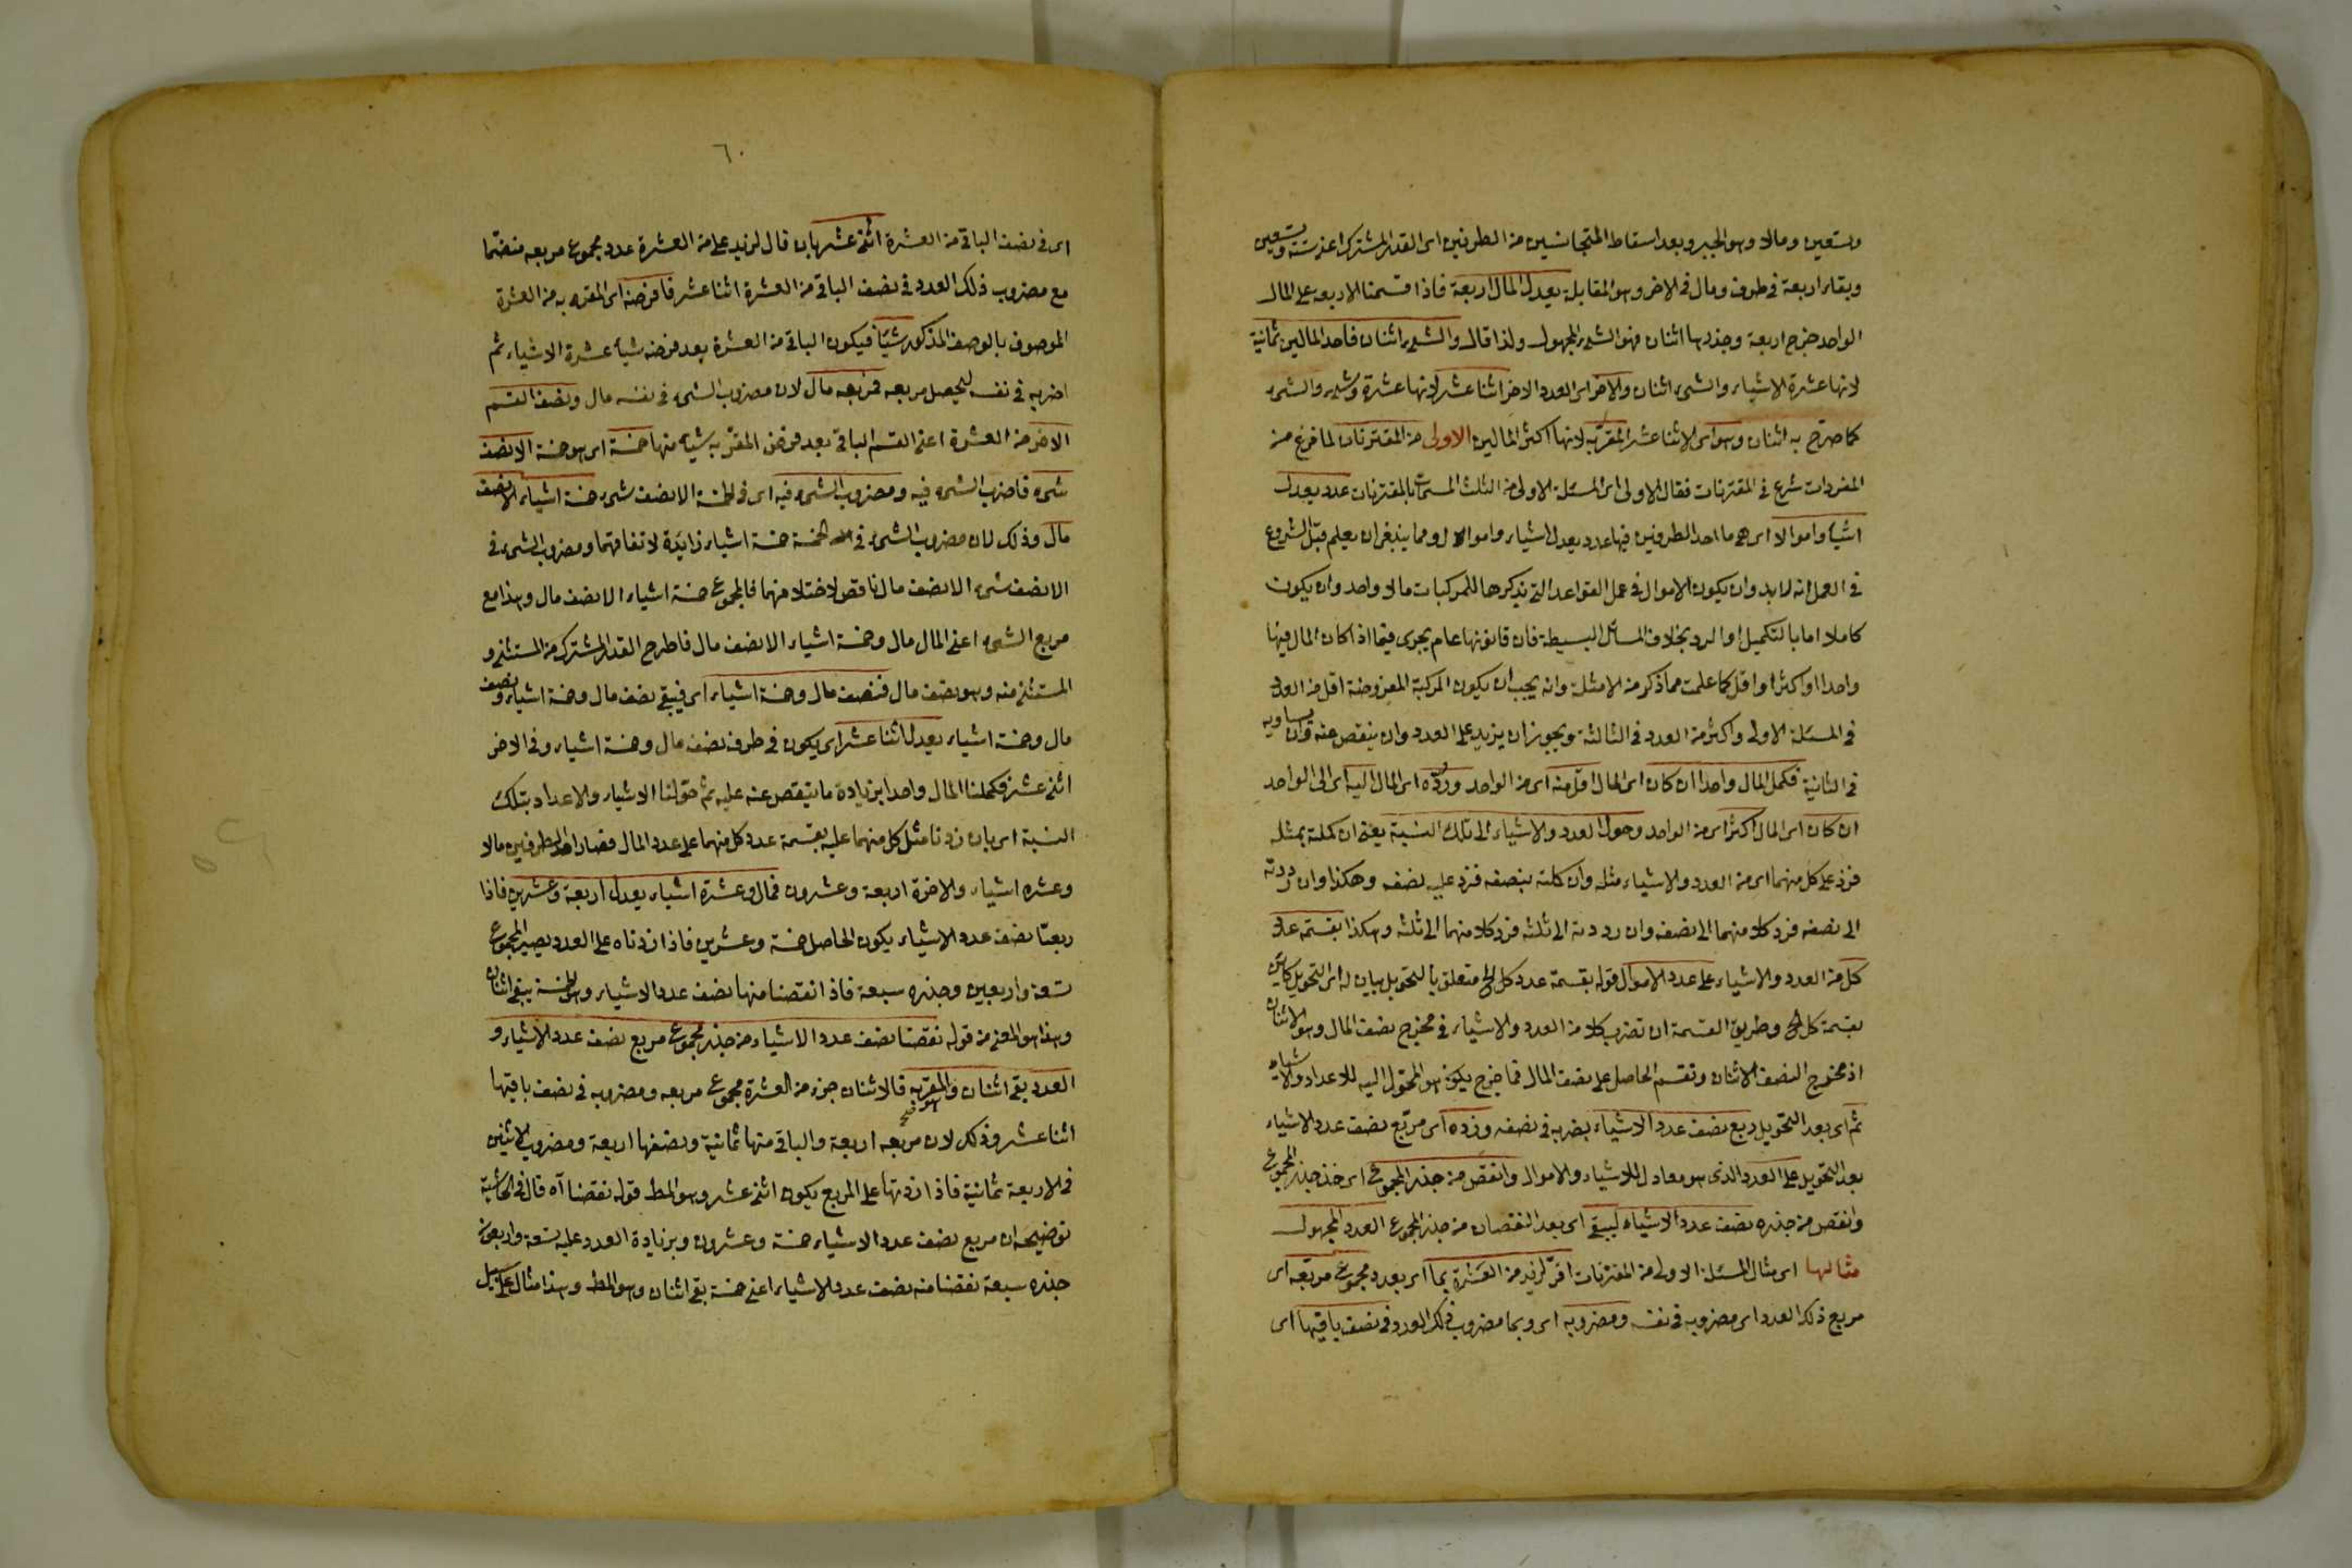 وستعين ومالا وهو الجبر وبعد اسقاط المتجانسين من الطرفين اى القدر المشترك اعنى ستة وتسعين
وبقاء اربعة فى طرف ومال فى الاخر وهو المقابلة يعدل المال اربعة فاذا قسمنا الاربعة على المال
الواحد خرج اربعة وجذرها اثنان فهو الشىء المجهول ولذا قال والشىء اثنان فاحد المالين ثمانية
لانها عشرة الاشياء والشىء اثنان والاخر اى العدد الاخر اثنا عشر لانها عشرة وشىء والشىء
كما صرّح به اثنان وهو اى الاثنا عشر المقرّ به لانها اكثر المالين الاولى من المقترنات لما فرغ من
المفردات شرع فى المقترنات فقال الاولى اى المسئلة الاولى من الثلث المسمات بالمقترنات عدد يعدل
اشياء واموالا اى هى ما احد الطرفين فيها عدد يعدل اشياء واموالا ومما ينبغى ان يعلم قبل الشروع
فى العمل انه لابد وان يكون الاموال فى عمل القواعد التى يذكرها للمركبات مالا واحد وان يكون
كاملا اما بالتكميل او الرد بخلاف المسائل البسيطة فان قانونها عام يجرى فيما اذا كان المال فيها
واحدا او اكثر او اقل كما علمت مما ذكر من الامثلة وانه يجب ان يكون المركبة المفروضة اقل من العدد
فى المسئلة الاولى واكثر من العدد فى الثالثة ويجوز ان يزيد على العدد وان ينقص عنه وان يساويه
فى الثانية فكمل المال واحدا ان كان اى المال اقل منه اى من الواحد وردّه اى المال اليه اى الى الواحد
ان كان اى المال اكثر اى من الواحد وحول العدد والاشياء الى تلك النسبة يعنى ان كملته بمثله
فزد على كل منهما اى من العدد والاشياء مثله وان كملته بنصفه فزد عليه نصفه وهكذا وان رددته
الى نصفه فرد كلا منهما الى نصفه وان رددته الى ثلثه فرد كلا منهما الى ثلثه وهكذا بقسمة عدد
كل من العدد والاشياء على عدد الاموال قوله بقسمة عدد كل الخ متعلق بالتحويل بيان له اى التحويل كائن
بقسمة كل الخ وطريق القسمة ان تضرب كلا من العدد والاشياء فى مخرج نصف المال وهو الاثنان
اذ مخرج النصف الاثنان وتقسم الحاصل على نصف المال فما خرج يكون هو المحول اليه للاعداد والاشياء
ثم اى بعد التحويل ربع نصف عدد الاشياء بضربه فى نصفه وزده اى مربّع نصف عدد الاشياء
بعد التحويل على العدد الذى هو معادل للاشياء والاموال وانقص من جذر المجموع اى خذ جذر المجموع
وانقص من جذره نصف عدد الاشياء ليبقى اى بعد النقصان من جذر المجموع العدد المجهول
مثالها اى مثال المسئلة الاولى من المقترنات اقرّ لزيد من العشرة بما اى بعدد مجموع مربّعه اى
مربع ذلك العدد اى مضروبه فى نفسه ومضروبه اى وبما مضروب ذلك العدد فى نصف باقيها اى
٦٠
اى فى نصف الباقى من العشرة اثنى عشر بان قال لزيد على من العشرة عدد مجموع مربعه منضمّا
مع مضروب ذلك العدد فى نصف الباقى من العشرة اثنا عشر فافرضه اى المقر به من العشرة
الموصوف بالوصف المذكور شيئا فيكون الباقى من العشرة بعد فرضه شيأ عشرة الا شياء ثم
اضربه فى نفسه ليحصل مربعه فمربعه مال لان مضروب الشىء فى نفسه مال ونصف القسم
الاخر من العشرة اعنى القسم الباقى بعد فرض المقرّ به شيأ منها خمسة اى هو خمسة الا نصف
شىء فاضرب الشىء فيه ومضروب الشىء فيه اى فى الخمسة الا نصف شىء خمسة اشياء الا نصف
مال وذلك لان مضروب الشىء فى الخمسة خمسة اشياء زايدة لاتفاقهما ومضروب الشىء فى
الا نصف شىء الا نصف مال ناقص لاختلافهما فالمجموع خمسة اشياء الا نصف مال وهذا مع
مربع الشىء اعنى المال مال وخمسة اشياء الا نصف مال فاطرح القدر المشترك من المستثنى و
المستثنى منه وهو نصف مال فنصف مال وخمسة اشياء اى فيبقى نصف مال وخمسة اشياء ونصف
مال وخمسة اشياء يعدل اثنا عشر اى يكون فى طرف نصف مال وخمسة اشياء وفى الاخر
اثنى عشر فكملنا المال واحدا بزيادة ما ينقص عنه عليه ثم حوّلنا الاشياء والاعداد بتلك
النسبة اى بان زدنا مثل كل منهما عليه بقسمة عدد كل منهما على عدد المال فصار احد الطرفين مالا
وعشرة اشياء والاخرة اربعة وعشرون فمال وعشرة اشياء يعدل اربعة وعشرين فاذا
ربعنا نصف عدد الاشياء يكون الحاصل خمسة وعشرين فاذا زدناه على العدد يصير المجموع
تسعة واربعين وجذره سبعة فاذا نقصنا منها نصف عدد الاشياء وهو الخمسة يبقى اثنان
وهذا هو المعنى من قوله نقصنا نصف عدد الاشياء من جذر مجموع مربع نصف عدد الاشياء و
العدد بقى اثنان والمقر به فالاثنان جزء من العشرة مجموع مربعه ومضروبه فى نصف باقيها
اثنا عشر وذلك لان مربعه اربعة والباقى منها ثمانية ونصفها اربعة ومضروب الاثنين
فى الاربعة ثمانية فاذا زدتها على المربع يكون اثنى عشر وهو المط قوله نقصنا آه قال فى الحاشية
توضيحه ان مربع نصف عدد الاشياء خمسة وعشرون وبزيادة العدد عليه تسعة واربعون
جذره سبعة نقصنا منه نصف عدد الاشياء اعنى خمسة بقى اثنان وهو المط وهذا مثال على سبيل